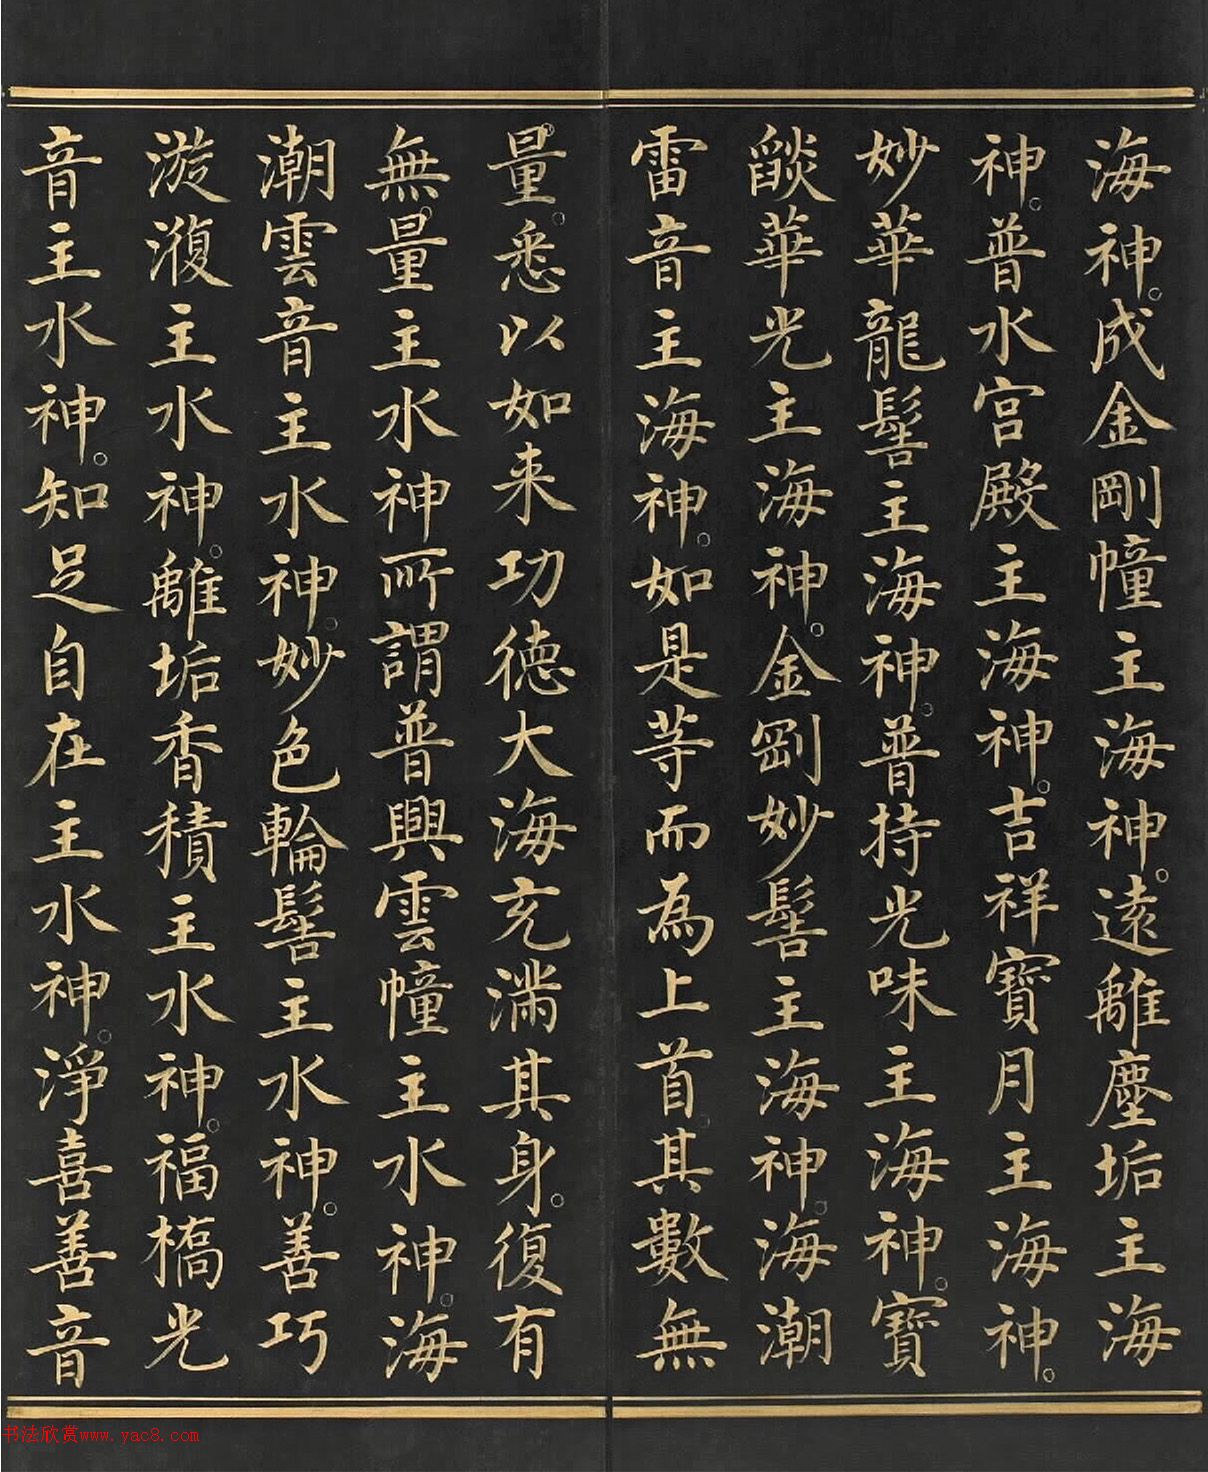 海神。成金剛幢主海神。遠離塵垢主海
神。普水宮殿主海神。吉祥寶月主海神。
妙華龍髻主海神。普持光味主海神。寶
燄華光主海神。金剛妙髻主海神。海潮
雷音主海神。如是等而為上首其數無
量。悉以如来功德大海充滿其身。復有
無量主水神所謂普興雲幢主水神。海
潮雲音主水神。妙色輪髻主水神。善巧
漩澓主水神。離垢香積主水神。福橋光
音主水神。知足自在主水神。淨喜善音
书法欣赏www.yac8.com